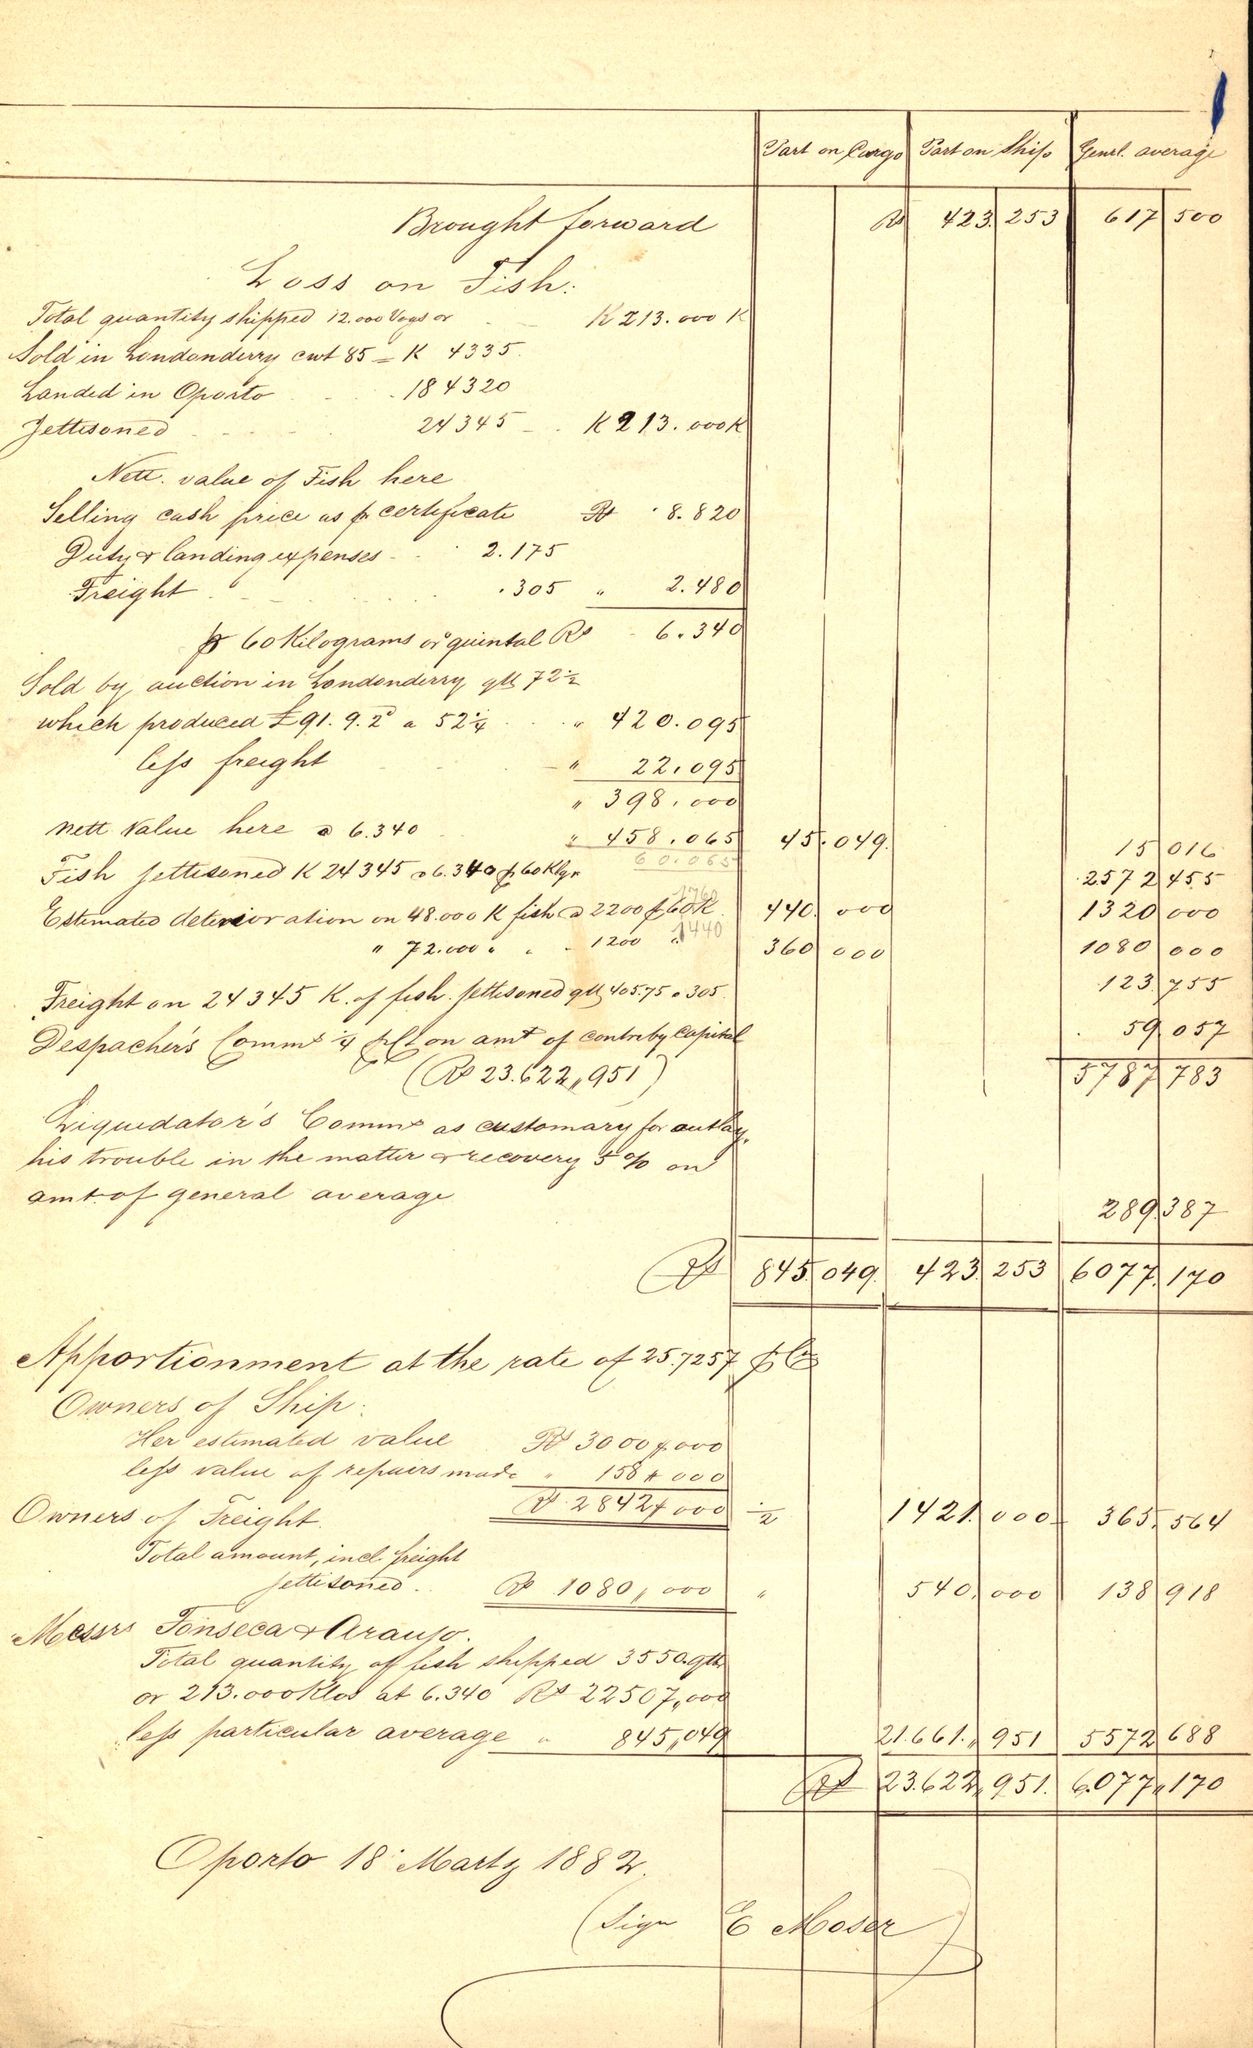 Part on Cargo Part on Ship Genrl. average
Brought forward Rs 423.253 617 500
Loss on Fish:
Total quantity shipped 12.000 Vogs or K 213.000 K
Sold in Londonderry cwt 85 = K 4335.
Landed in Oporto 184320
Jettisoned 24345 K 213.000 K
Nett. value of Fish here
Selling cash price as pr certificate Rs 8.820
Duty & landing expenses 2.175
Freight .305 " 2.480
pr 60 Kilograms or quintal Rs 6.340
Sold by auction in Londonderry qtl 72 1/2
which produced £91.9.2d a 52 1/4 " 420.095
less freight " 22.095
" 398.000
Nett Value here a 6.340 " 458.065 45.049. 15 016
60.065
Fish jettisoned K 24345 a 6.340 pr 60 Klgr 2572 455
1760
Estimated deterioration on 48.000 K fish a 2200 pr 60 K. 440.000 1320 000
" 72.000 " " 1200 " 1440 360 000 1080 000
Freight on 24345 K. of fish jettisoned qtl 405.75 a 305. 123 755
Despacher's Comms 1/4 pCt on amt of contreby capital 59 057
(Rs 23.622,,951) 5787 783
Liquedator's Comms as customary for outlay,
his trouble in the matter & recovery 5% on
amt. of general average 289.387
Rs 845.049. 423.253 6077.170
Apportionment at the rate of 25.7257 p Ct
Owners of Ship:
Her estimated value Rs 3000,,000
less value of repairs made " 158,,000
Rs 2842,,000 1/2 1421.000 365.564
Owners of Freight.
Total amount, incl. freight
jettisoned. Rs 1080,,000 " 540.000 138 918
Messrs Fonseca & Araujo.
Total quantity of fish shipped 3550 qtl
or 213.000 Klos at 6.340 Rs 22507,,000
less particular average " 845,,049 21.661.,,951 5572 688
Rs 23.622,,951. 6.077,,170
Oporto 18 Martz 1882.
(Sign E Moser